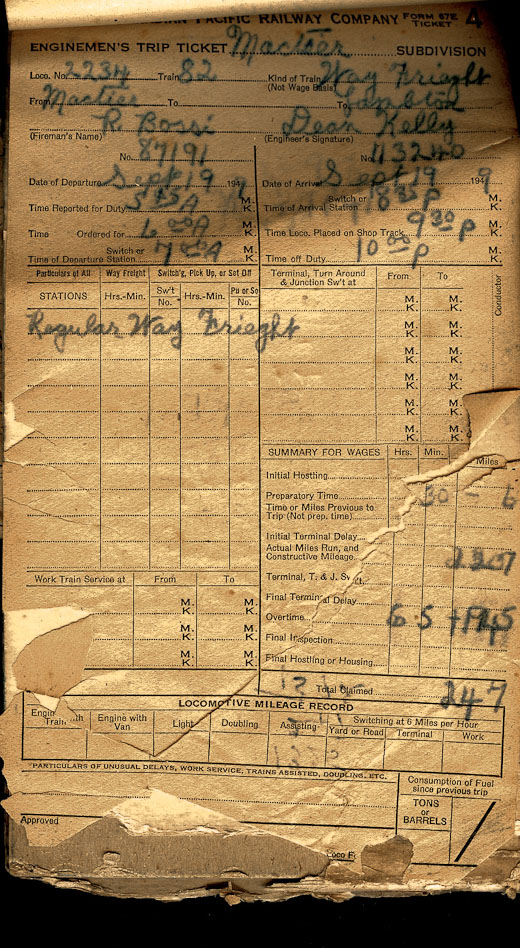 PACIFIC RAILWAY COMPANY FORM 67E
TICKET 4
ENGINEMEN'S TRIP TICKET Mactier SUBDIVISION
Loco. No. 2234 Train 82 Kind of Train Way Frieght
(Not Wage Basis)
From Mactier To To Lambton
R. Bossi Dean Kelly
(Fireman's Name) (Engineer's Signature)
No. 87191 No. 113240
Date of Departure Sept 19 1949 Date of Arrival Sept 19 1949
Time Reported for Duty 5 45 A M. K. Switch or Time of Arrival Station 8 35 P M. K.
Time Ordered for 6 00 A M. K. Time Loco. Placed on Shop Track 9 30 P M. K.
Switch or Time of Departure Station 7 00 A M. K. Time off Duty 10 00 P M. K.
Particulars of All Way Freight Switch'g, Pick Up, or Set Off Terminal, Turn Around & Junction Sw't at From To
STATIONS Hrs.-Min. Sw't No. Hrs.-Min. Pu or So No.
Conductor
Regular Way Frieght
M. K. M. K.
M. K. M. K.
M. K. M. K.
M. K. M. K.
M. K. M. K.
M. K. M.
SUMMARY FOR WAGES Hrs. Min. Miles
Initial Hostling
Preparatory Time 30 - 6
Time or Miles Previous to
Trip (Not prep. time)
Initial Terminal Delay
Actual Miles Run, and
Constructive Mileage
Terminal, T. & J.
Final Terminal Delay
Overtime 6 5
Final Inspection
Final Hostling or Housing
Work Train Service at From To
M. K. M. K.
M. K. M. K.
M. K. M. K.
Total Claimed 247
LOCOMOTIVE MILEAGE RECORD
Train with Engine with Van Light Doubling Assisting Switching at 6 Miles per Hour
Yard or Road Terminal Work
PARTICULARS OF UNUSUAL DELAYS, WORK SERVICE, TRAINS ASSISTED, DOUBLING, ETC.
Consumption of Fuel
since previous trip
TONS
or
BARRELS
Approved
Loco